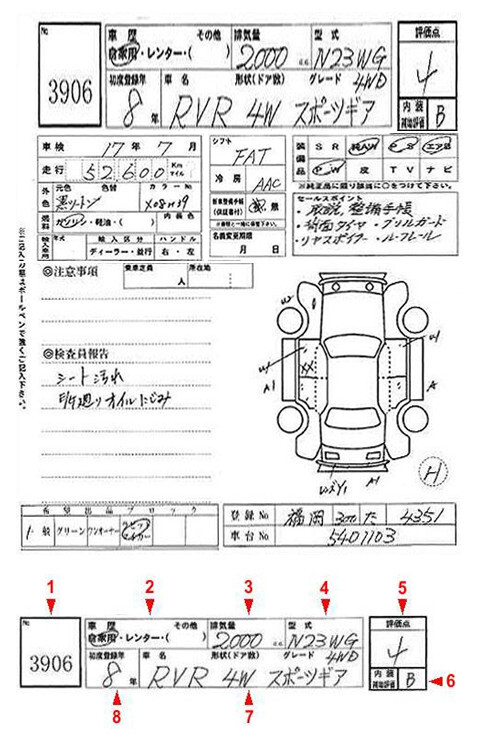 No. 3906
車歴 その他 排気量 型式 評価点
自家用・レンター・( ) 2000 c.c. N23WG 4
初度登録年 車名 形状(ドア数) グレード 4WD 内装補助評価 B
8年 RVR 4W スポーツギア
車検 17年 7月 シフト FAT 装備品 S R P A/W P S エアB
走行 52,600 Km マイル 冷房 AAC P W 皮 T V ナビ
※純正品に限り該当に○をつけて下さい。
外色 元色 色替 カラーNo
黒ツートン X08M09
新車整備手帳(保証書付) 有 無
セールスポイント
・取説、整備手帳
・背面タイヤ・グリルガード
・リヤスポイラー・ルーフレール
燃料 ガソリン・軽油・( ) 内装色
名義変更期限
月 日
輸入車 年式 輸入区分 ハンドル
ディーラー・並行 右・左
◎注意事項 乗車定員 人 所在地
※ご記入の際はボールペンで強くご記入下さい。
◎検査員報告
シート汚れ
A1 A
A1
H
1般 グリーン ワンオーナー
登録No 福岡 300 た 4351
車台No 5401103
1 2 3 4 5
No. 3906
車歴 その他 排気量 型式 評価点
自家用・レンター・( ) 2000 c.c. N23WG 4
初度登録年 車名 形状(ドア数) グレード 4WD 内装補助評価 B 6
8年 RVR 4W スポーツギア
8 7